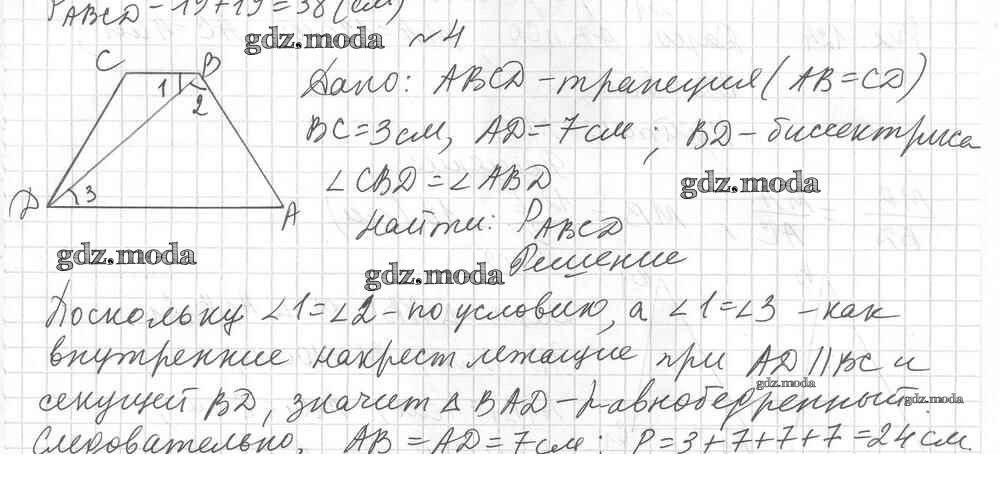 P ABCD = 19+19=38 (см)
gdz.moda №4
C B
1 2
Дано: ABCD - трапеция (AB=CD)
BC=3см, AD=7см; BD - биссектриса
∠CBD=∠ABD
gdz.moda
D 3 A
Найти: P ABCD
gdz.moda
gdz.moda
Решение
Поскольку ∠1=∠2 - по условию, а ∠1=∠3 - как
внутренние накрест лежащие при AD||BC и
gdz.moda
секущей BD, значит △ BAD - равнобедренный.
gdz.moda
Следовательно, AB = AD = 7см; P=3+7+7+7=24 см.